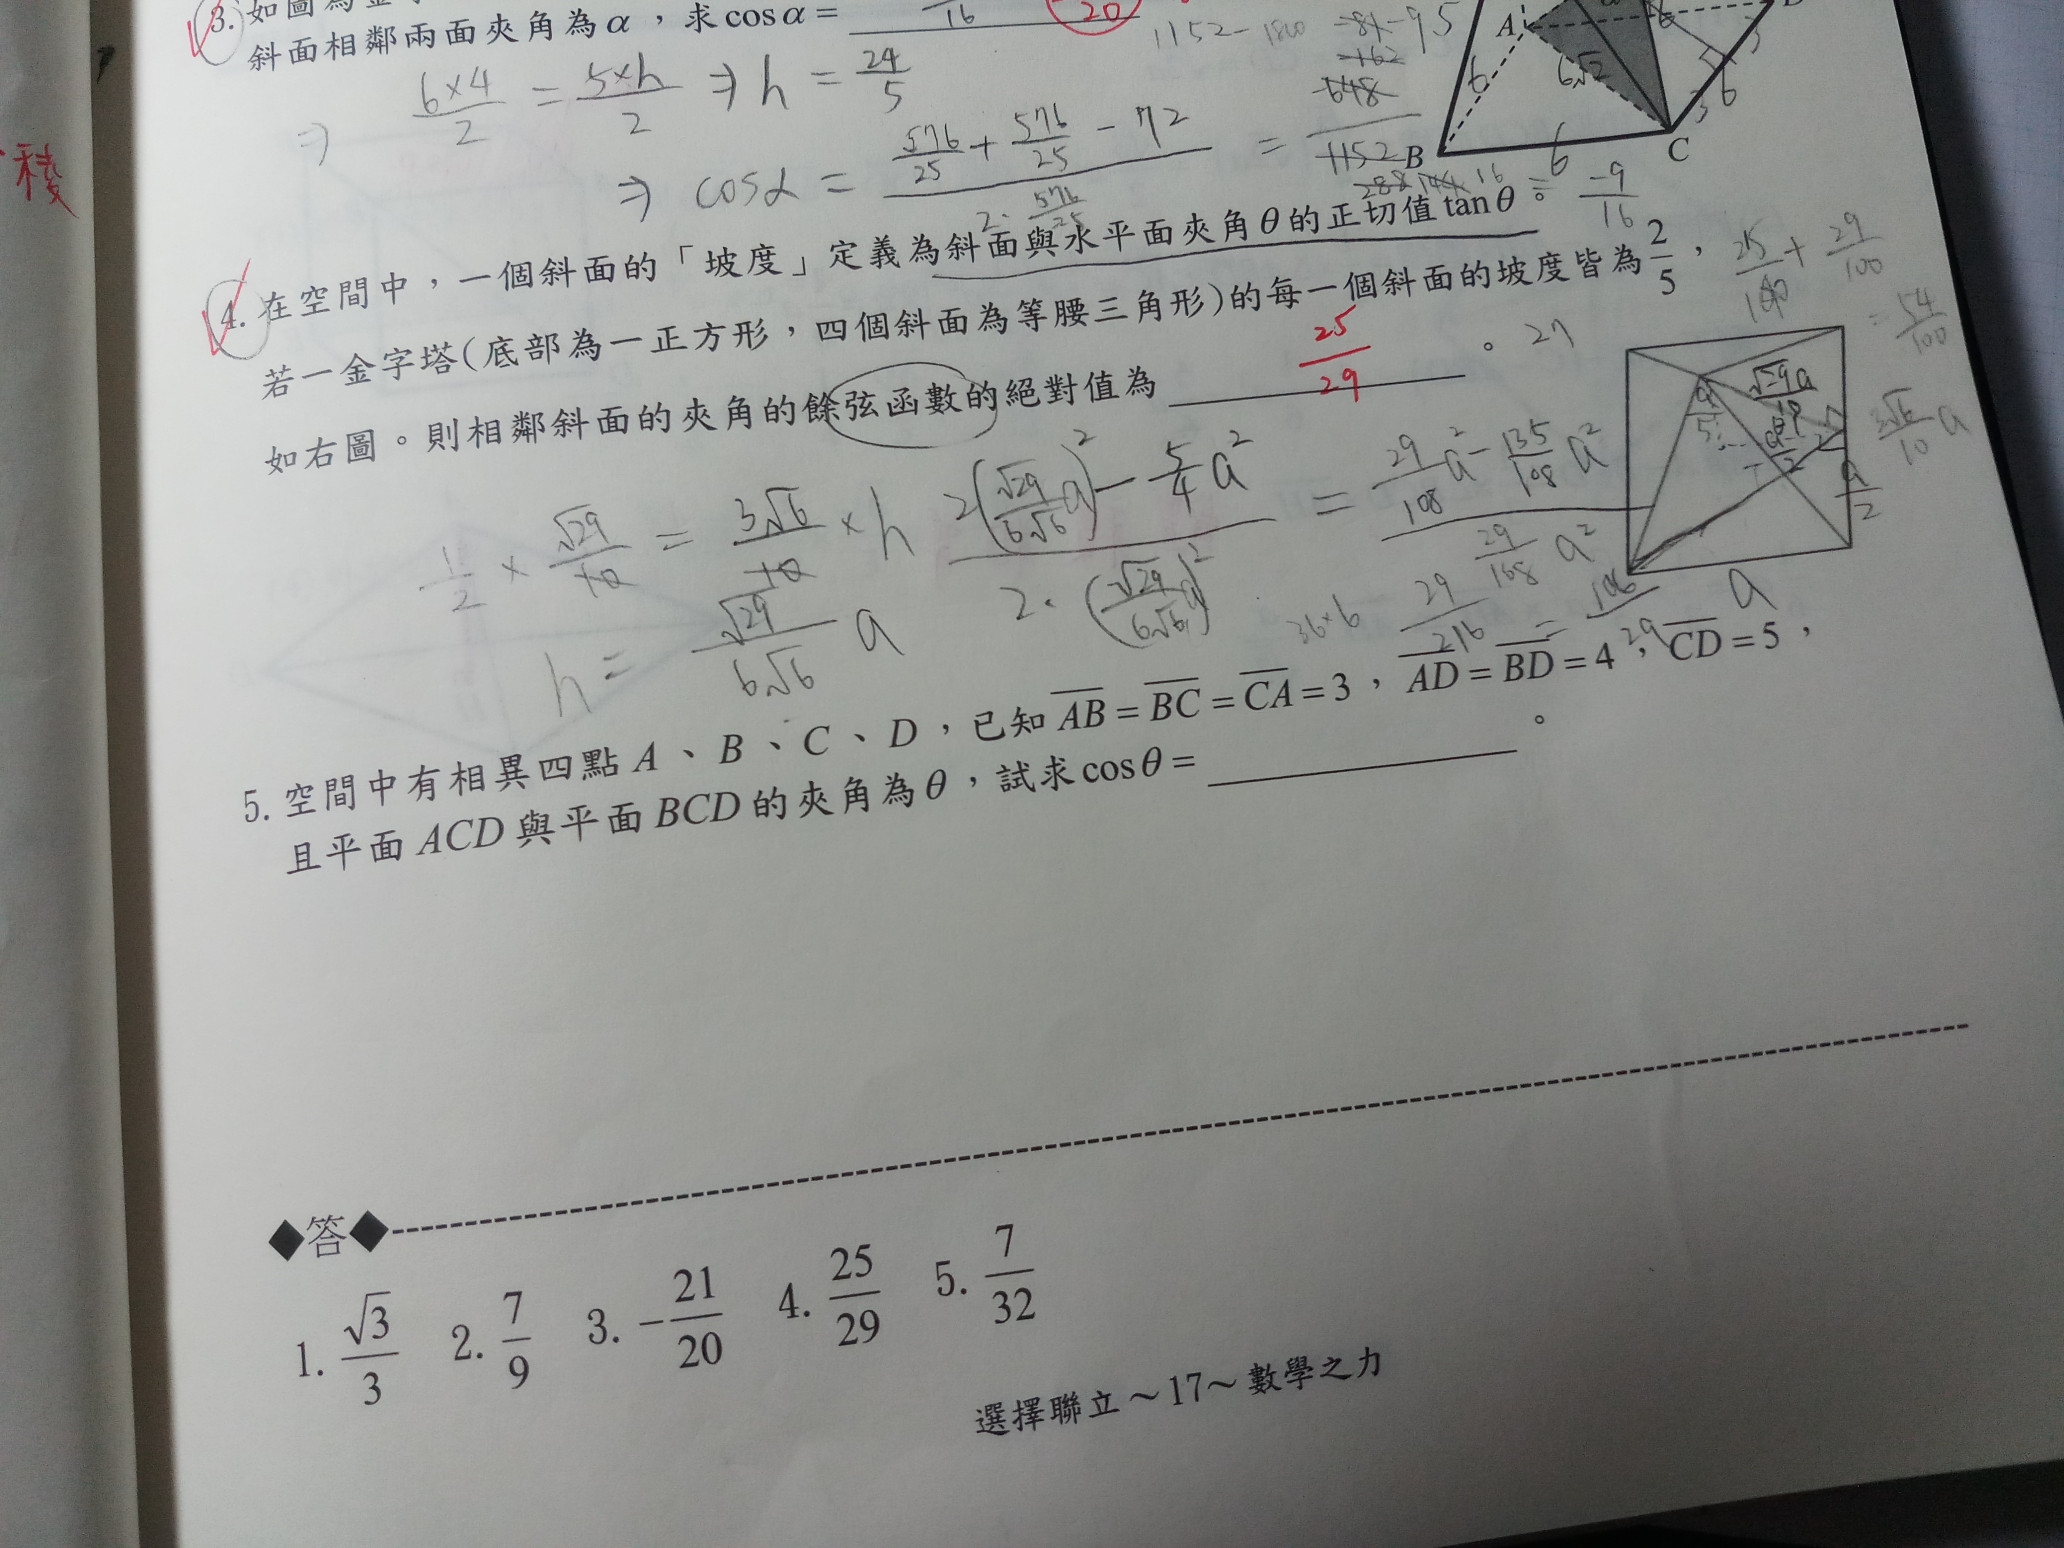 3. 如圖為金
斜面相鄰兩面夾角為α,求cosα=
16
20
1152-1800
⇒ 6×4/2 = 5×h/2 ⇒ h = 24/5
⇒ cosα = (576/25 + 576/25 - 72)/(2·576/25) = -648/1152
-162
288 144 16
= -9/16
A
B
C
6
6
6
6√2
5
3
3
稜
4. 在空間中,一個斜面的「坡度」定義為斜面與水平面夾角θ的正切值tanθ。
若一金字塔(底部為一正方形,四個斜面為等腰三角形)的每一個斜面的坡度皆為2/5,
如右圖。則相鄰斜面的夾角的餘弦函數的絕對值為 25/29 。
27
25/100 + 29/100
= 54/100
3√6/10 a
√29 a/10
a/5
a/2
a/2
a
1/2 × √29/10 = 3√6/10 × h
h = √29/6√6 a
(2(√29/6√6 a)² - 5/4 a²)/(2·(√29/6√6 a)²) = (29/108 a² - 135/108 a²)/(29/108 a²)
36×6
29/216
= 106/29
5. 空間中有相異四點 A、B、C、D,已知 AB=BC=CA=3,AD=BD=4,CD=5,
且平面 ACD 與平面 BCD 的夾角為θ,試求cosθ= 。
◆答◆
1. √3/3 2. 7/9 3. -21/20 4. 25/29 5. 7/32
選擇聯立~17~數學之力